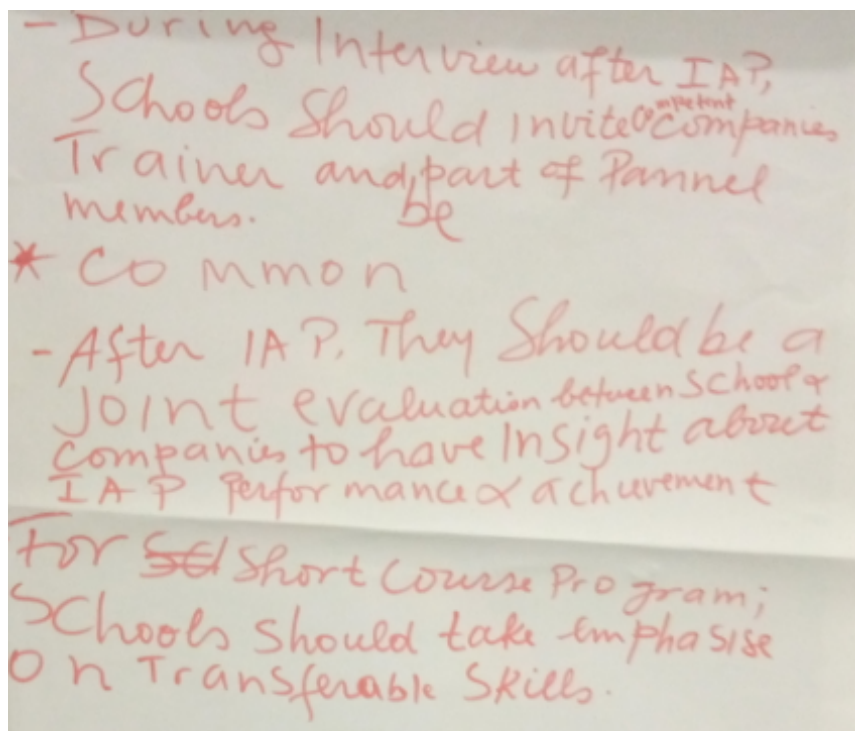 - During Interview after IAP,
Schools Should Invite competent companies
Trainer and be part of Pannel
members.
* Common
- After IAP. They Should be a
Joint evaluation between School &
companies to have Insight about
IAP Performance & achuevement
For Short Course Program;
Schools should take emphasise
on Transferable Skills.